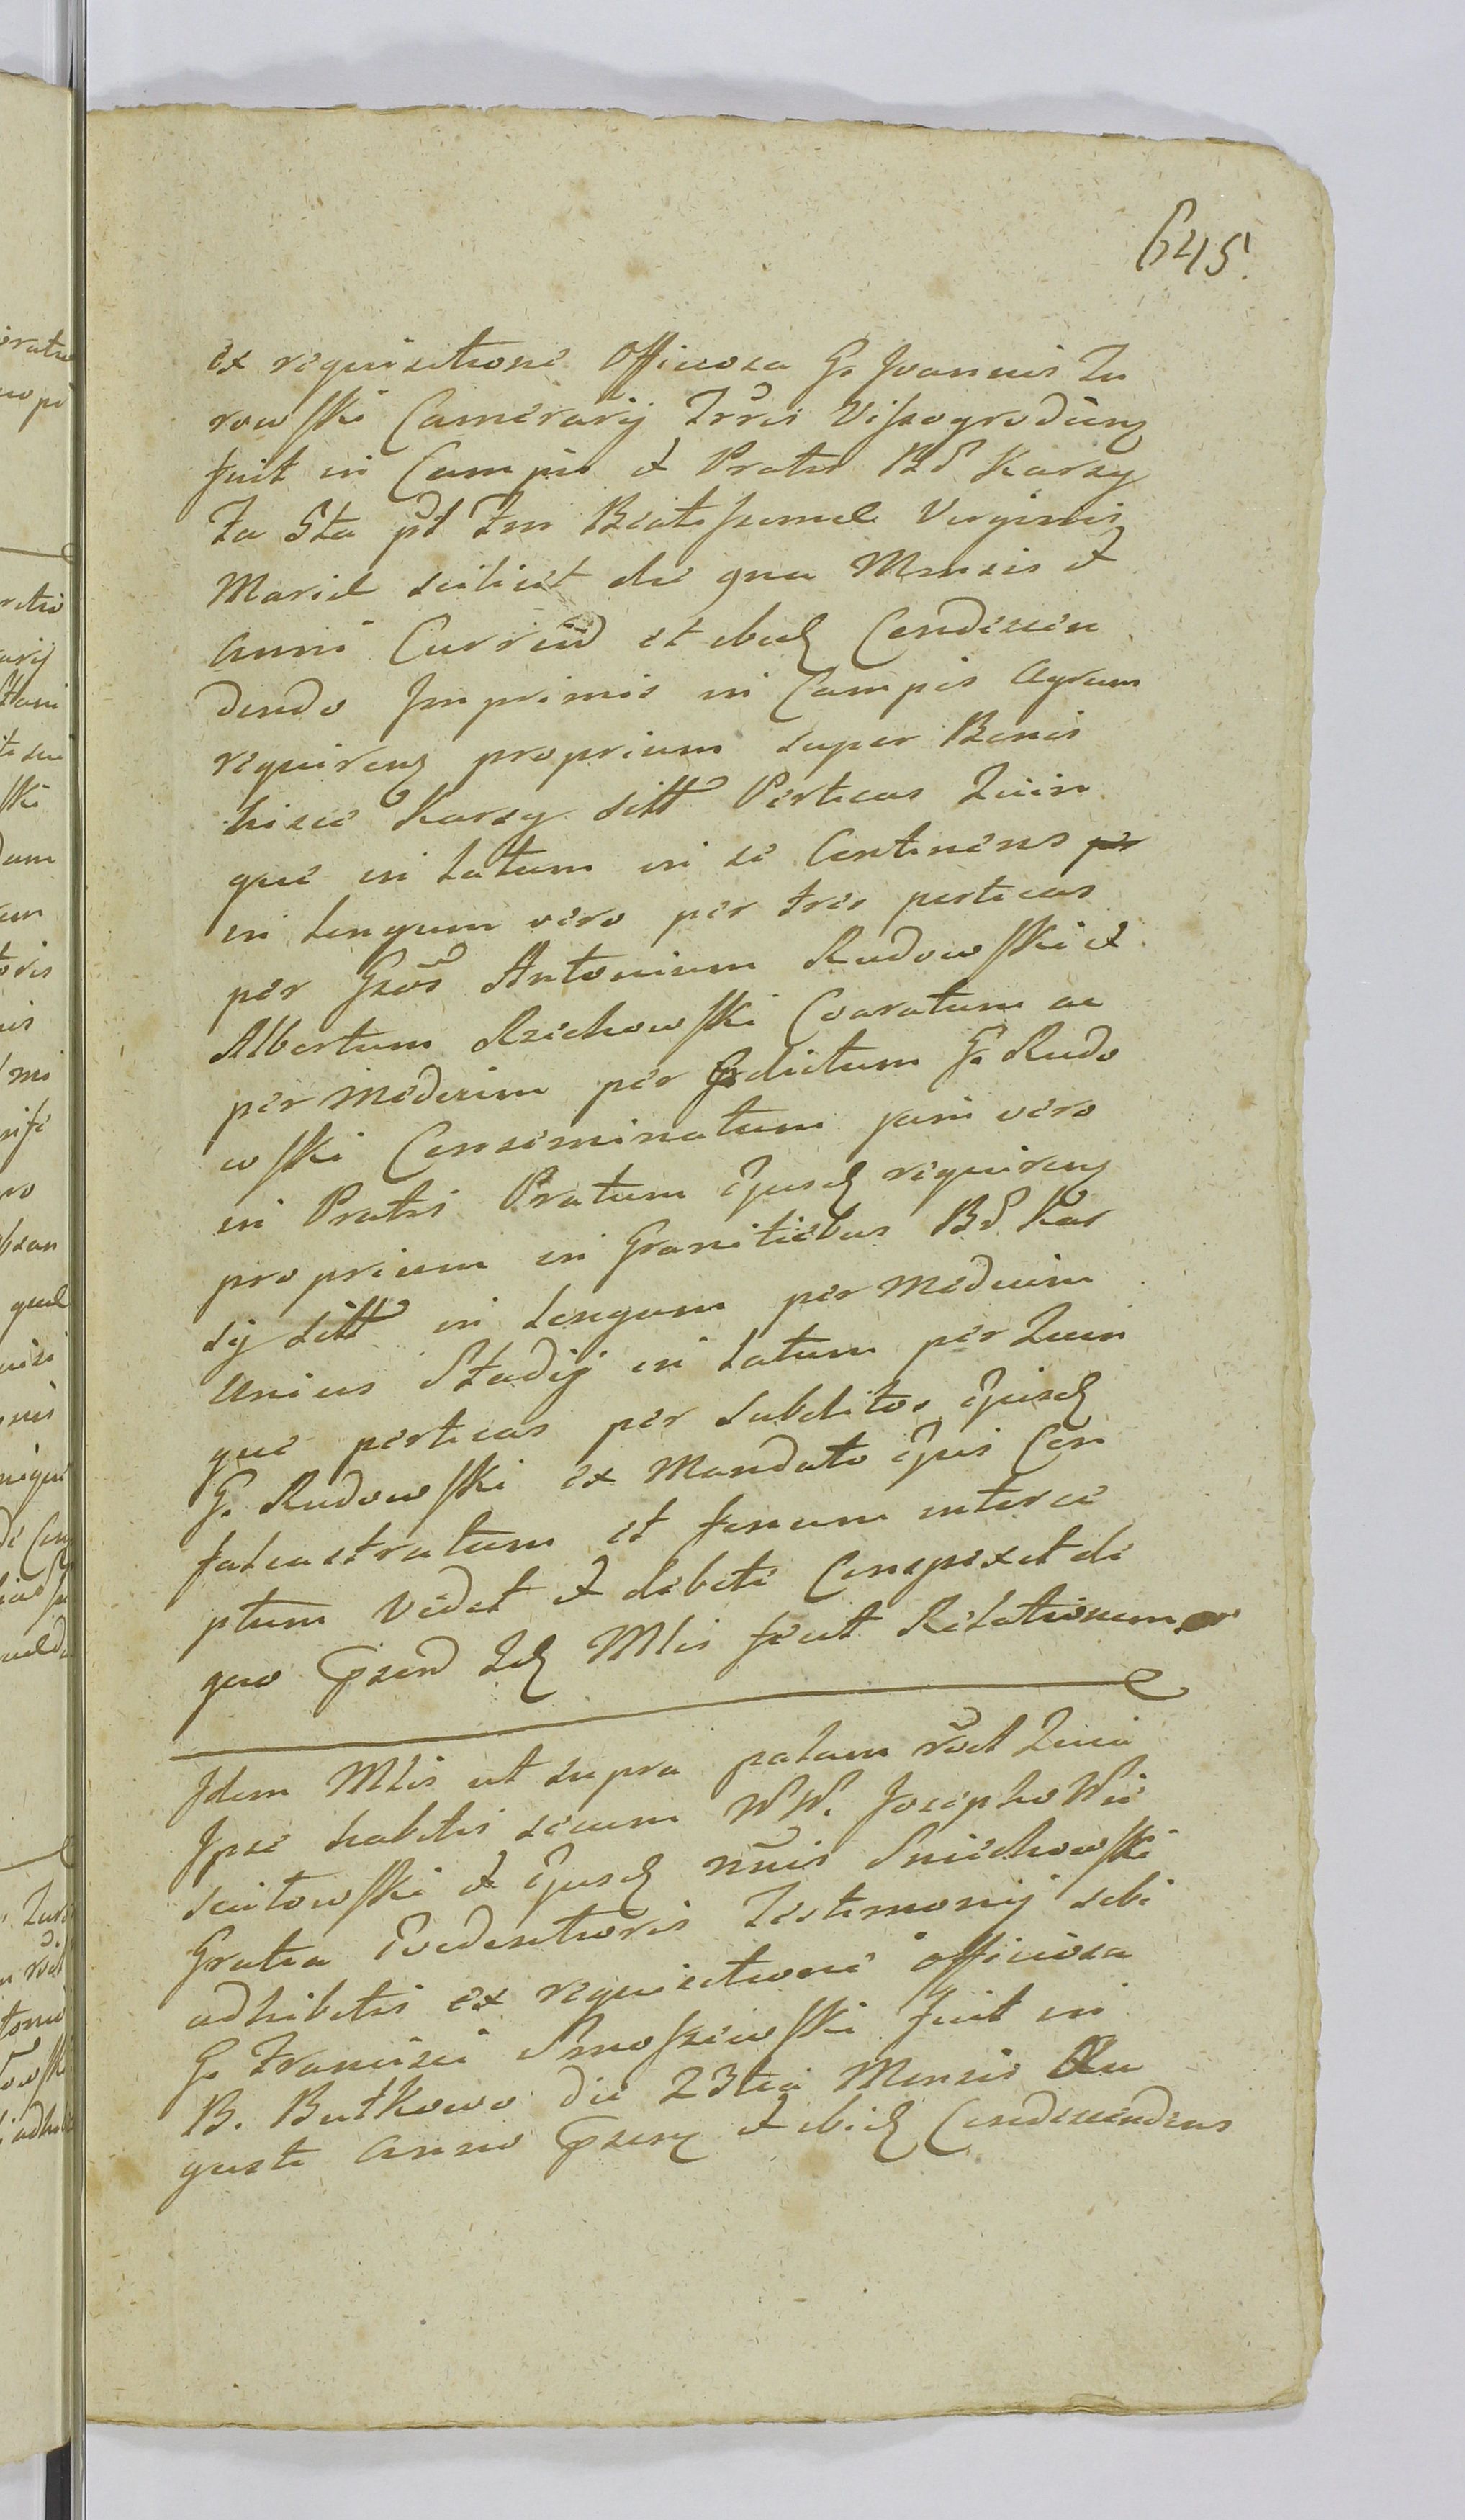 645.
ex requisitione officiosa G. Joannis Zu
rowski Camerarij Trris Vissogrodieng
fuit in Campis et Pratis BS Karsy
Fa Sta pt Fm Beatissimae Virginis
Mariae scilicet die 9na Mensis et
Anni Currind et ibid Condescen
dendo Imprimis in Campis Agrum
requireng proprium super Bonis
hisce Karsy sitt Perticas Quin
que in Latum in se Continens
in Longum vero per tres perticas
per Gsos Antonium Rudowski et
Albertum Rzechowski Coaratum ac
per Medium per Prdictum G. Rudo
wski Conseminatum jam vero
in Pratis Pratum Ejusd requireng
proprium in Granitiebus BS Kar
sij sitt in Longum per Medium
Unius Stadij in Latum per Quin
que perticas per subditos Ejusd
G. Rudowski ex Mandato Ejus Con
falcastratum et fenum interce
ptum Vidit et debite Conspexit de
quo Prsend Id Mlis fecit Relationem
Idem Mlis ut supra palam rõct Quia
Ipse habitis secum WW. Josepho Wie
scitowski et Ejusd nnis Sniechowski
Gratia Evidentioris Testimonij sibi
adhibitis ex requisitione officiosa
G. Francisci Smoszewski fuit in
B. Butkowo die 23tia Mensis Au
gusti Anno Prseng et ibid Condescendens